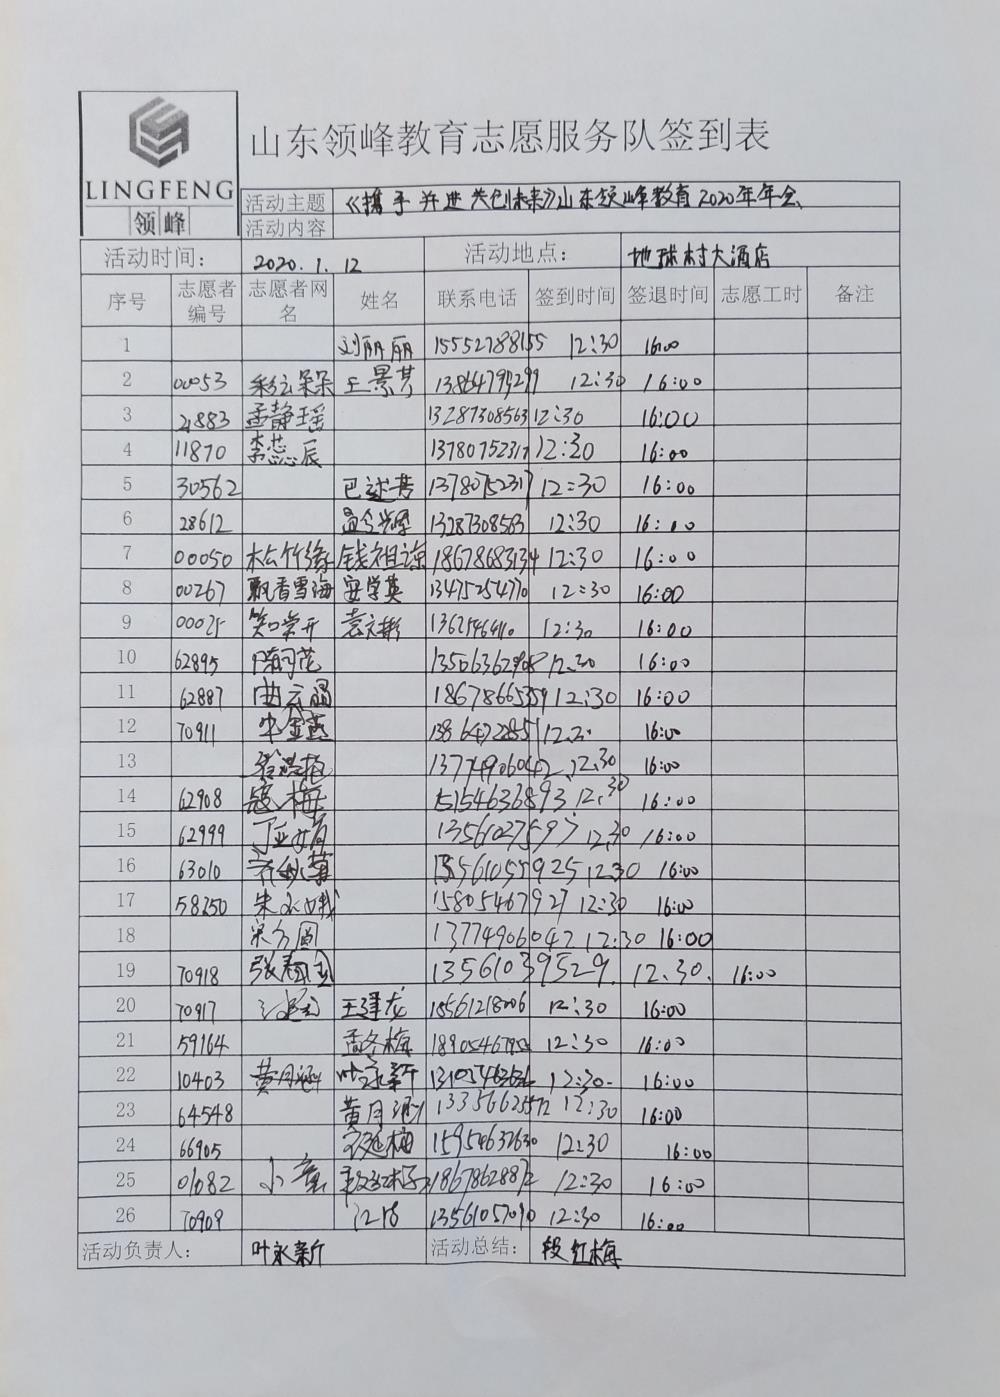 LINGFENG
领峰
山东领峰教育志愿服务队签到表
活动主题 《携手并进 共创未来》山东领峰教育2020年年会
活动内容
活动时间: 2020.1.12 活动地点: 地球村大酒店
序号 志愿者编号 志愿者网名 姓名 联系电话 签到时间 签退时间 志愿工时 备注
1 刘丽丽 15552788155 12:30 16:00
2 00053 彩云朵朵 王景芬 13864799299 12:30 16:00
3 21883 孟静瑶 13287308563 12:30 16:00
4 11870 李蕊辰 13780752317 12:30 16:00
5 30562 13780752317 12:30 16:00
6 28612 13287308563 12:30 16:00
7 00050 松竹缘 钱祖谅 18678683134 12:30 16:00
8 00267 飘香雪海 安学英 13475254770 12:30 16:00
9 00025 笑口常开 袁文彬 12:30 16:00
10 62895 隋同花 13506362908 12.30 16:00
11 62887 曲云霞 12:30 16:00
12 70911 牛金燕 16:00
13 13774906042 12.30 16:00
14 62908 寇梅 15154636893 12.30 16:00
15 62999 13561027597 12.30 16:00
16 63010 13561055925 12.30 16:00
17 58250 朱永娥 15805467927 12:30 16:00
18 13774906042 12:30 16:00
19 70918 13561039529 12.30. 16:00
20 70917 王建龙 15561218006 12:30 16:00
21 59164 孟冬梅 12:30 16:00
22 10403 黄月涵 叶永新 12:30 16:00
23 64548 12:30 16:00
24 66905 15954632630 12:30 16:00
25 01082 小童 12:30 16:00
26 70909 13561057090 12:30 16:00
活动负责人: 叶永新 活动总结: 段红梅